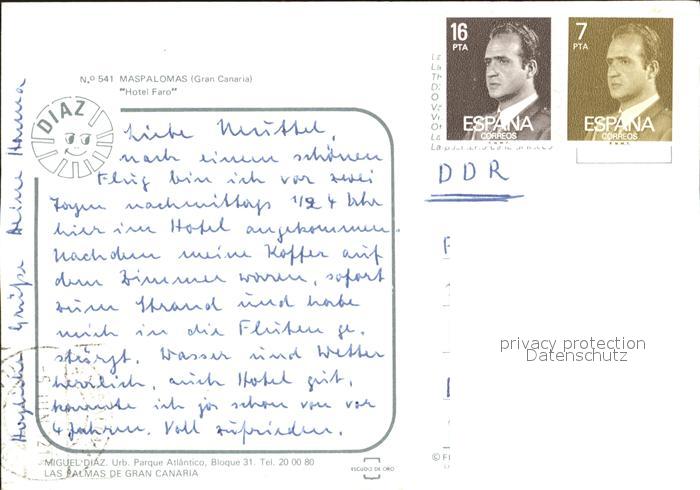 N.º 541 MASPALOMAS (Gran Canaria)
"Hotel Faro"
DIAZ
Liebe Muttel,
nach einem schönen
Flug bin ich vor zwei
Tagen nachmittags 1/2 4 Uhr
hier im Hotel angekommen.
Nachdem meine Koffer auf
dem Zimmer waren, sofort
zum Strand und habe
mich in die Fluten ge-
stürzt. Wasser und Wetter
herrlich, auch Hotel gut,
kannte ich ja schon von vor
4 Jahren. Voll zufrieden.
Herzliche Grüße Deine Hanna
MIGUEL DIAZ. Urb. Parque Atlántico, Bloque 31. Tel. 20 00 80
LAS PALMAS DE GRAN CANARIA
ESCUDO DE ORO
16
PTA
ESPAÑA
CORREOS
7
PTA
ESPAÑA
CORREOS
DDR
privacy protection
Datenschutz